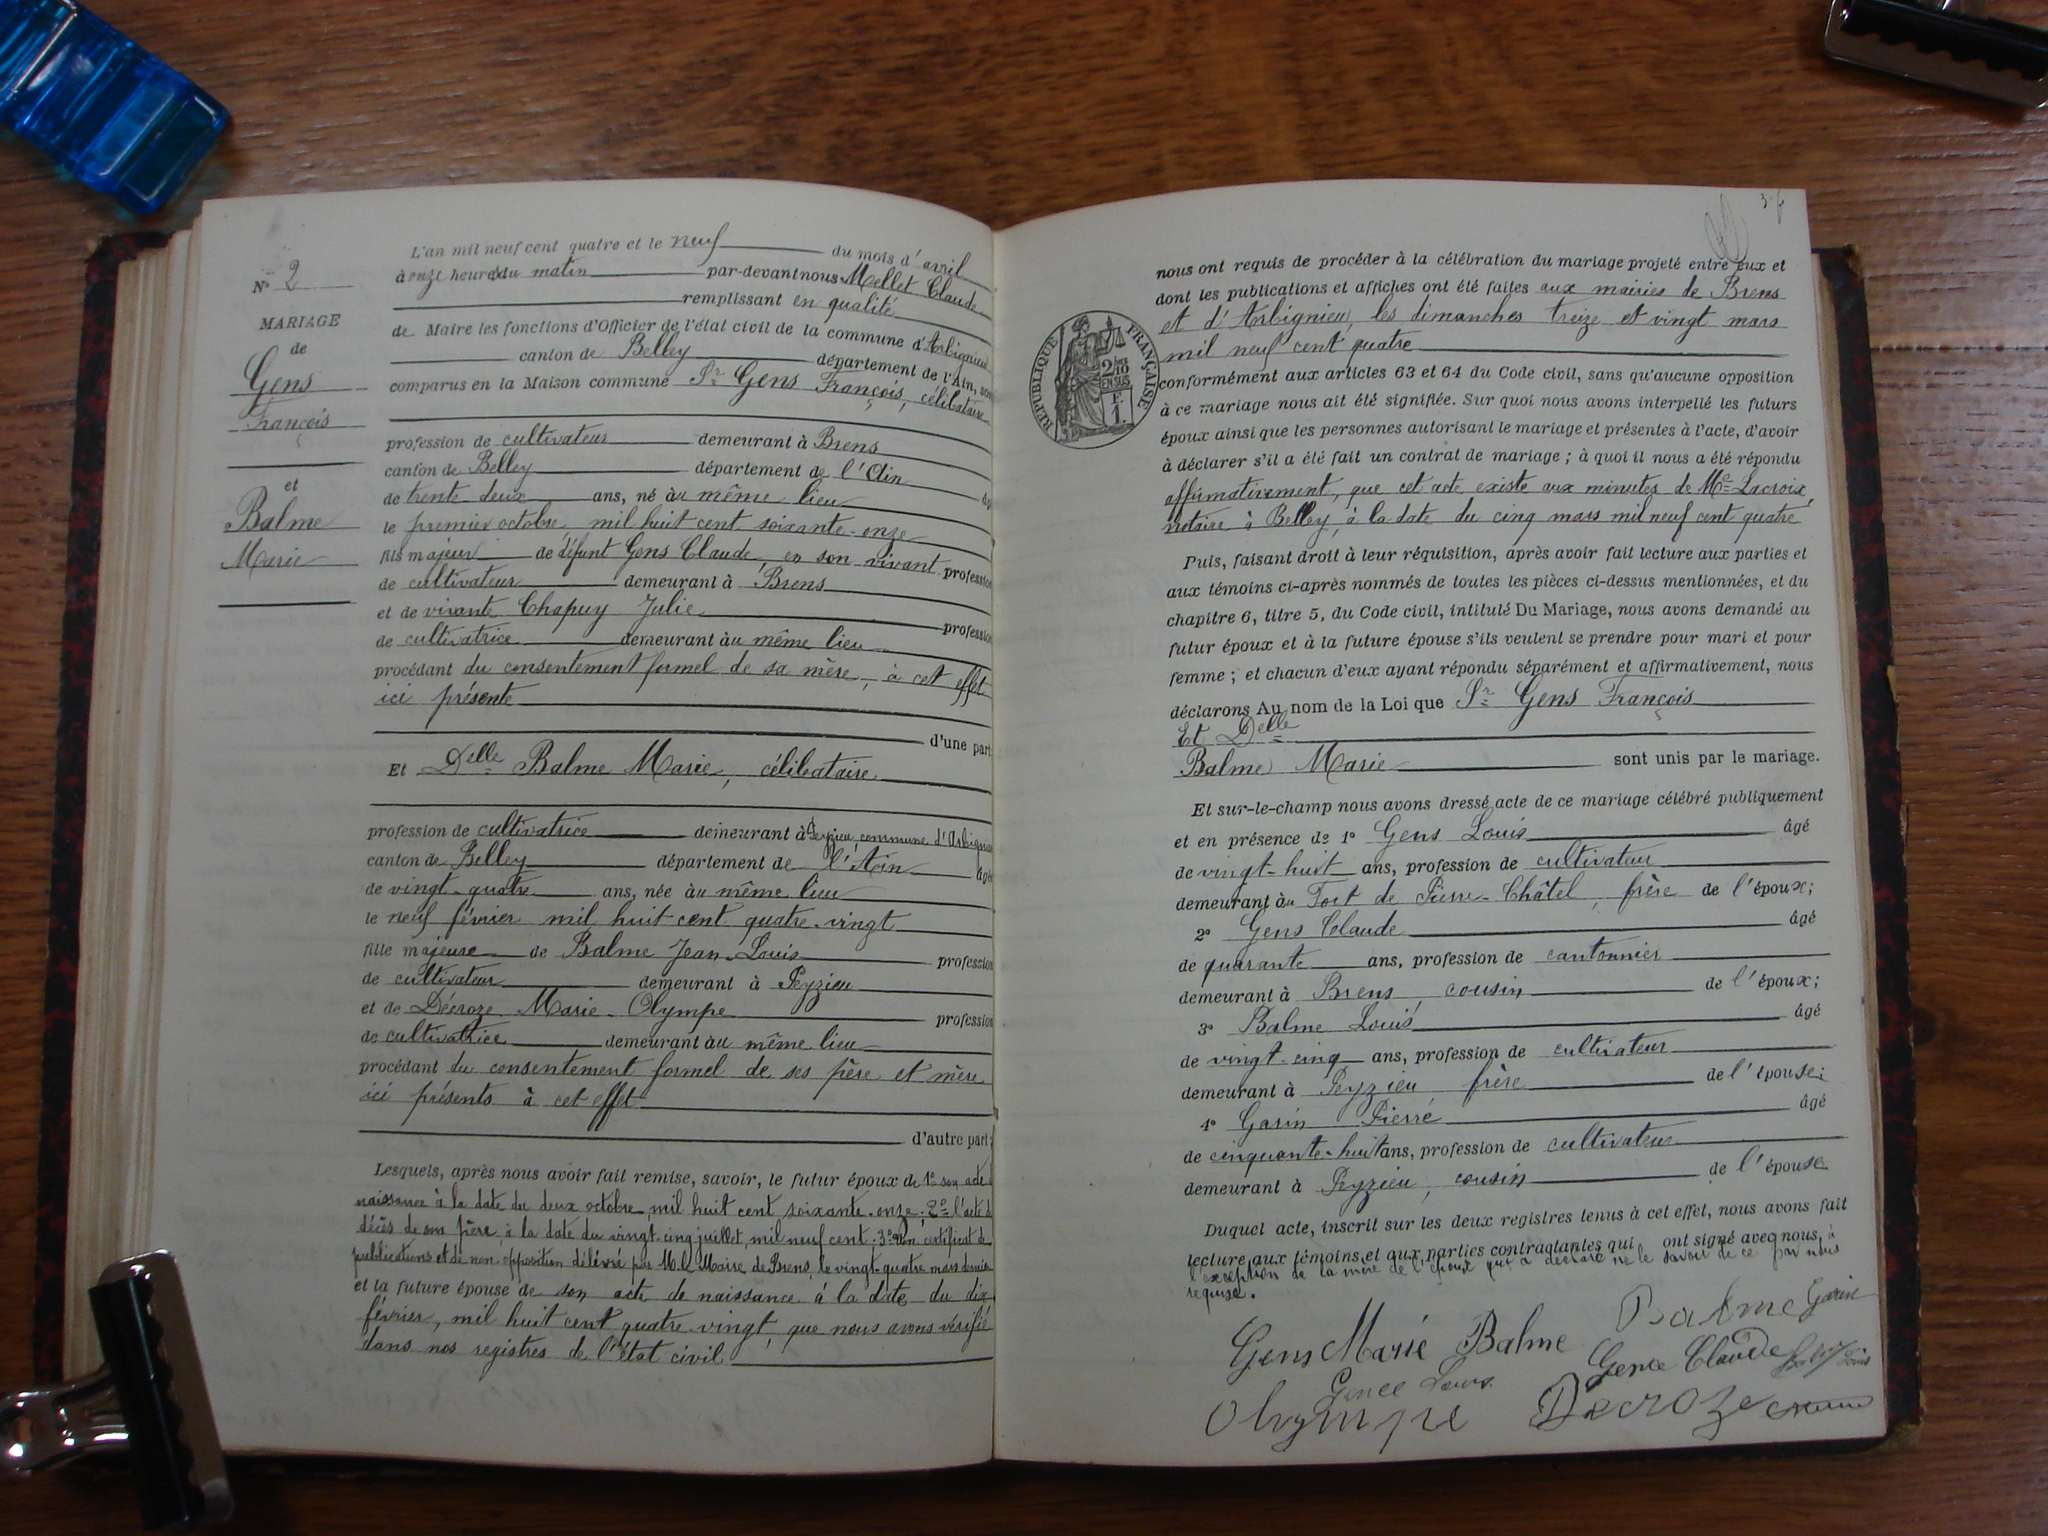 N° 2
MARIAGE
de
Gens
François
et
Balme
Marie
L'an mil neuf cent quatre et le neuf du mois d'avril
à onze heures du matin par-devant nous Mellet Claude
remplissant en qualité
de Maire les fonctions d'Officier de l'état civil de la commune d'Arbignieu
canton de Belley département de l'Ain, sont
comparus en la Maison commune Sr Gens François, célibataire
profession de cultivateur demeurant à Brens
canton de Belley département de l'Ain âgé
de trente-deux ans, né au même lieu
le premier octobre mil huit cent soixante-onze
fils majeur de défunt Gens Claude, en son vivant profession
de cultivateur demeurant à Brens
et de vivante Chapuy Julie profession
de cultivatrice demeurant au même lieu
procédant du consentement formel de sa mère, à cet effet
ici présente
d'une part
Et Delle Balme Marie, célibataire
profession de cultivatrice demeurant à Peyzieu, commune d'Arbignieu
canton de Belley département de l'Ain âgée
de vingt-quatre ans, née au même lieu
le neuf février mil huit cent quatre-vingt
fille majeure de Balme Jean-Louis profession
de cultivateur demeurant à Peyzieu
et de Décroze Marie-Olympe profession
de cultivatrice demeurant au même lieu
procédant du consentement formel de ses père et mère
ici présents à cet effet
d'autre part;
Lesquels, après nous avoir fait remise, savoir, le futur époux de 1° son acte de
naissance à la date du deux octobre mil huit cent soixante-onze; 2° l'acte de
décès de son père, à la date du vingt-cinq juillet, mil neuf cent; 3° certificat de
publications et de non-opposition délivré par M. le Maire de Brens, le vingt-quatre mars dernier
et la future épouse de son acte de naissance à la date du dix
février, mil huit cent quatre-vingt, que nous avons vérifié
dans nos registres de l'état civil
nous ont requis de procéder à la célébration du mariage projeté entre eux et
dont les publications et affiches ont été faites aux mairies de Brens
et d'Arbignieu, les dimanches treize et vingt mars
mil neuf cent quatre
RÉPUBLIQUE FRANÇAISE
2/10
EN SUS
F.
1
conformément aux articles 63 et 64 du Code civil, sans qu'aucune opposition
à ce mariage nous ait été signifiée. Sur quoi nous avons interpellé les futurs
époux ainsi que les personnes autorisant le mariage et présentes à l'acte, d'avoir
à déclarer s'il a été fait un contrat de mariage; à quoi il nous a été répondu
affirmativement, que cet acte existe aux minutes de Me Lacroix,
notaire à Belley, à la date du cinq mars mil neuf cent quatre
Puis, faisant droit à leur réquisition, après avoir fait lecture aux parties et
aux témoins ci-après nommés de toutes les pièces ci-dessus mentionnées, et du
chapitre 6, titre 5, du Code civil, intitulé Du Mariage, nous avons demandé au
futur époux et à la future épouse s'ils veulent se prendre pour mari et pour
femme; et chacun d'eux ayant répondu séparément et affirmativement, nous
déclarons Au nom de la Loi que Sr Gens François
Et Delle
Balme Marie sont unis par le mariage.
Et sur-le-champ nous avons dressé acte de ce mariage célébré publiquement
et en présence de 1° Gens Louis âgé
de vingt-huit ans, profession de cultivateur
demeurant au Fort de Pierre-Châtel, frère de l'époux;
2° Gens Claude âgé
de quarante ans, profession de cantonnier
demeurant à Brens, cousin de l'époux;
3° Balme Louis âgé
de vingt-cinq ans, profession de cultivateur
demeurant à Peyzieu frère de l'épouse;
4° Garin Pierre âgé
de cinquante-huit ans, profession de cultivateur
demeurant à Peyzieu, cousin de l'épouse
Duquel acte, inscrit sur les deux registres tenus à cet effet, nous avons fait
lecture aux témoins et aux parties contractantes qui ont signé avec nous, à
l'exception de la mère de l'époux qui a déclaré ne le savoir de ce par nous
requise.
Balme Garin
Gens Marie Balme
Gence Claude
Gence Louis
Olympe Decroze